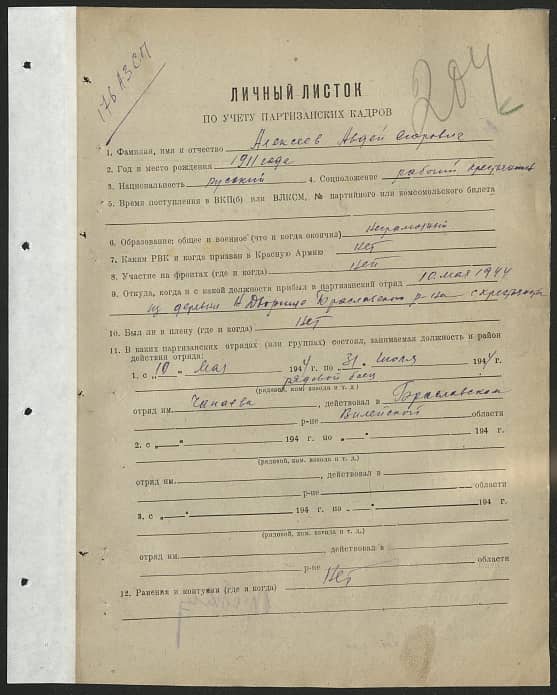 176 АЗСП
204
ЛИЧНЫЙ ЛИСТОК
ПО УЧЕТУ ПАРТИЗАНСКИХ КАДРОВ
1. Фамилия, имя и отчество Алексеев Авдей Егорович
2. Год и место рождения 1911 года
3. Национальность русский 4. Соцположение рабочий
5. Время поступления в ВКП(б) или ВЛКСМ, № партийного или комсомольского билета
6. Образование общее и военное (что и когда окончил) Неграмотный
7. Каким РВК и когда призван в Красную Армию Нет
8. Участие на фронтах (где и когда) Нет
9. Откуда, когда и с какой должности прибыл в партизанский отряд 10 мая 1944
из деревни Дворище Браславского р-на
10. Был ли в плену (где и когда) Нет
11. В каких партизанских отрядах (или группах) состоял, занимаемая должность и район
действия отряда:
1. с „10" Мая 1944 г. по „31" июля 1944 г.
рядовой боец
(рядовой, ком. взвода и т. д.)
отряд им. Чапаева, действовал в Браславском
р-не Вилейской области
2. с „ " 194 г. по „ " 194 г.
(рядовой, ком. взвода и т. д.)
отряд им. , действовал в
р-не области
3. с „ " 194 г. по „ " 194 г.
(рядовой, ком. взвода и т. д.)
отряд им. , действовал в
р-не области
12. Ранения и контузии (где и когда) Нет